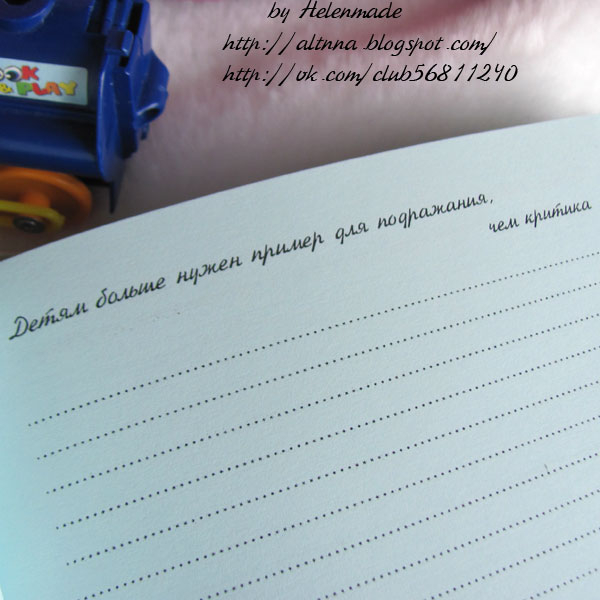 by Helenmade
http://altnna.blogspot.com/
http://vk.com/club56811240
OOK
& PLAY
Детям больше нужен пример для подражания,
чем критика